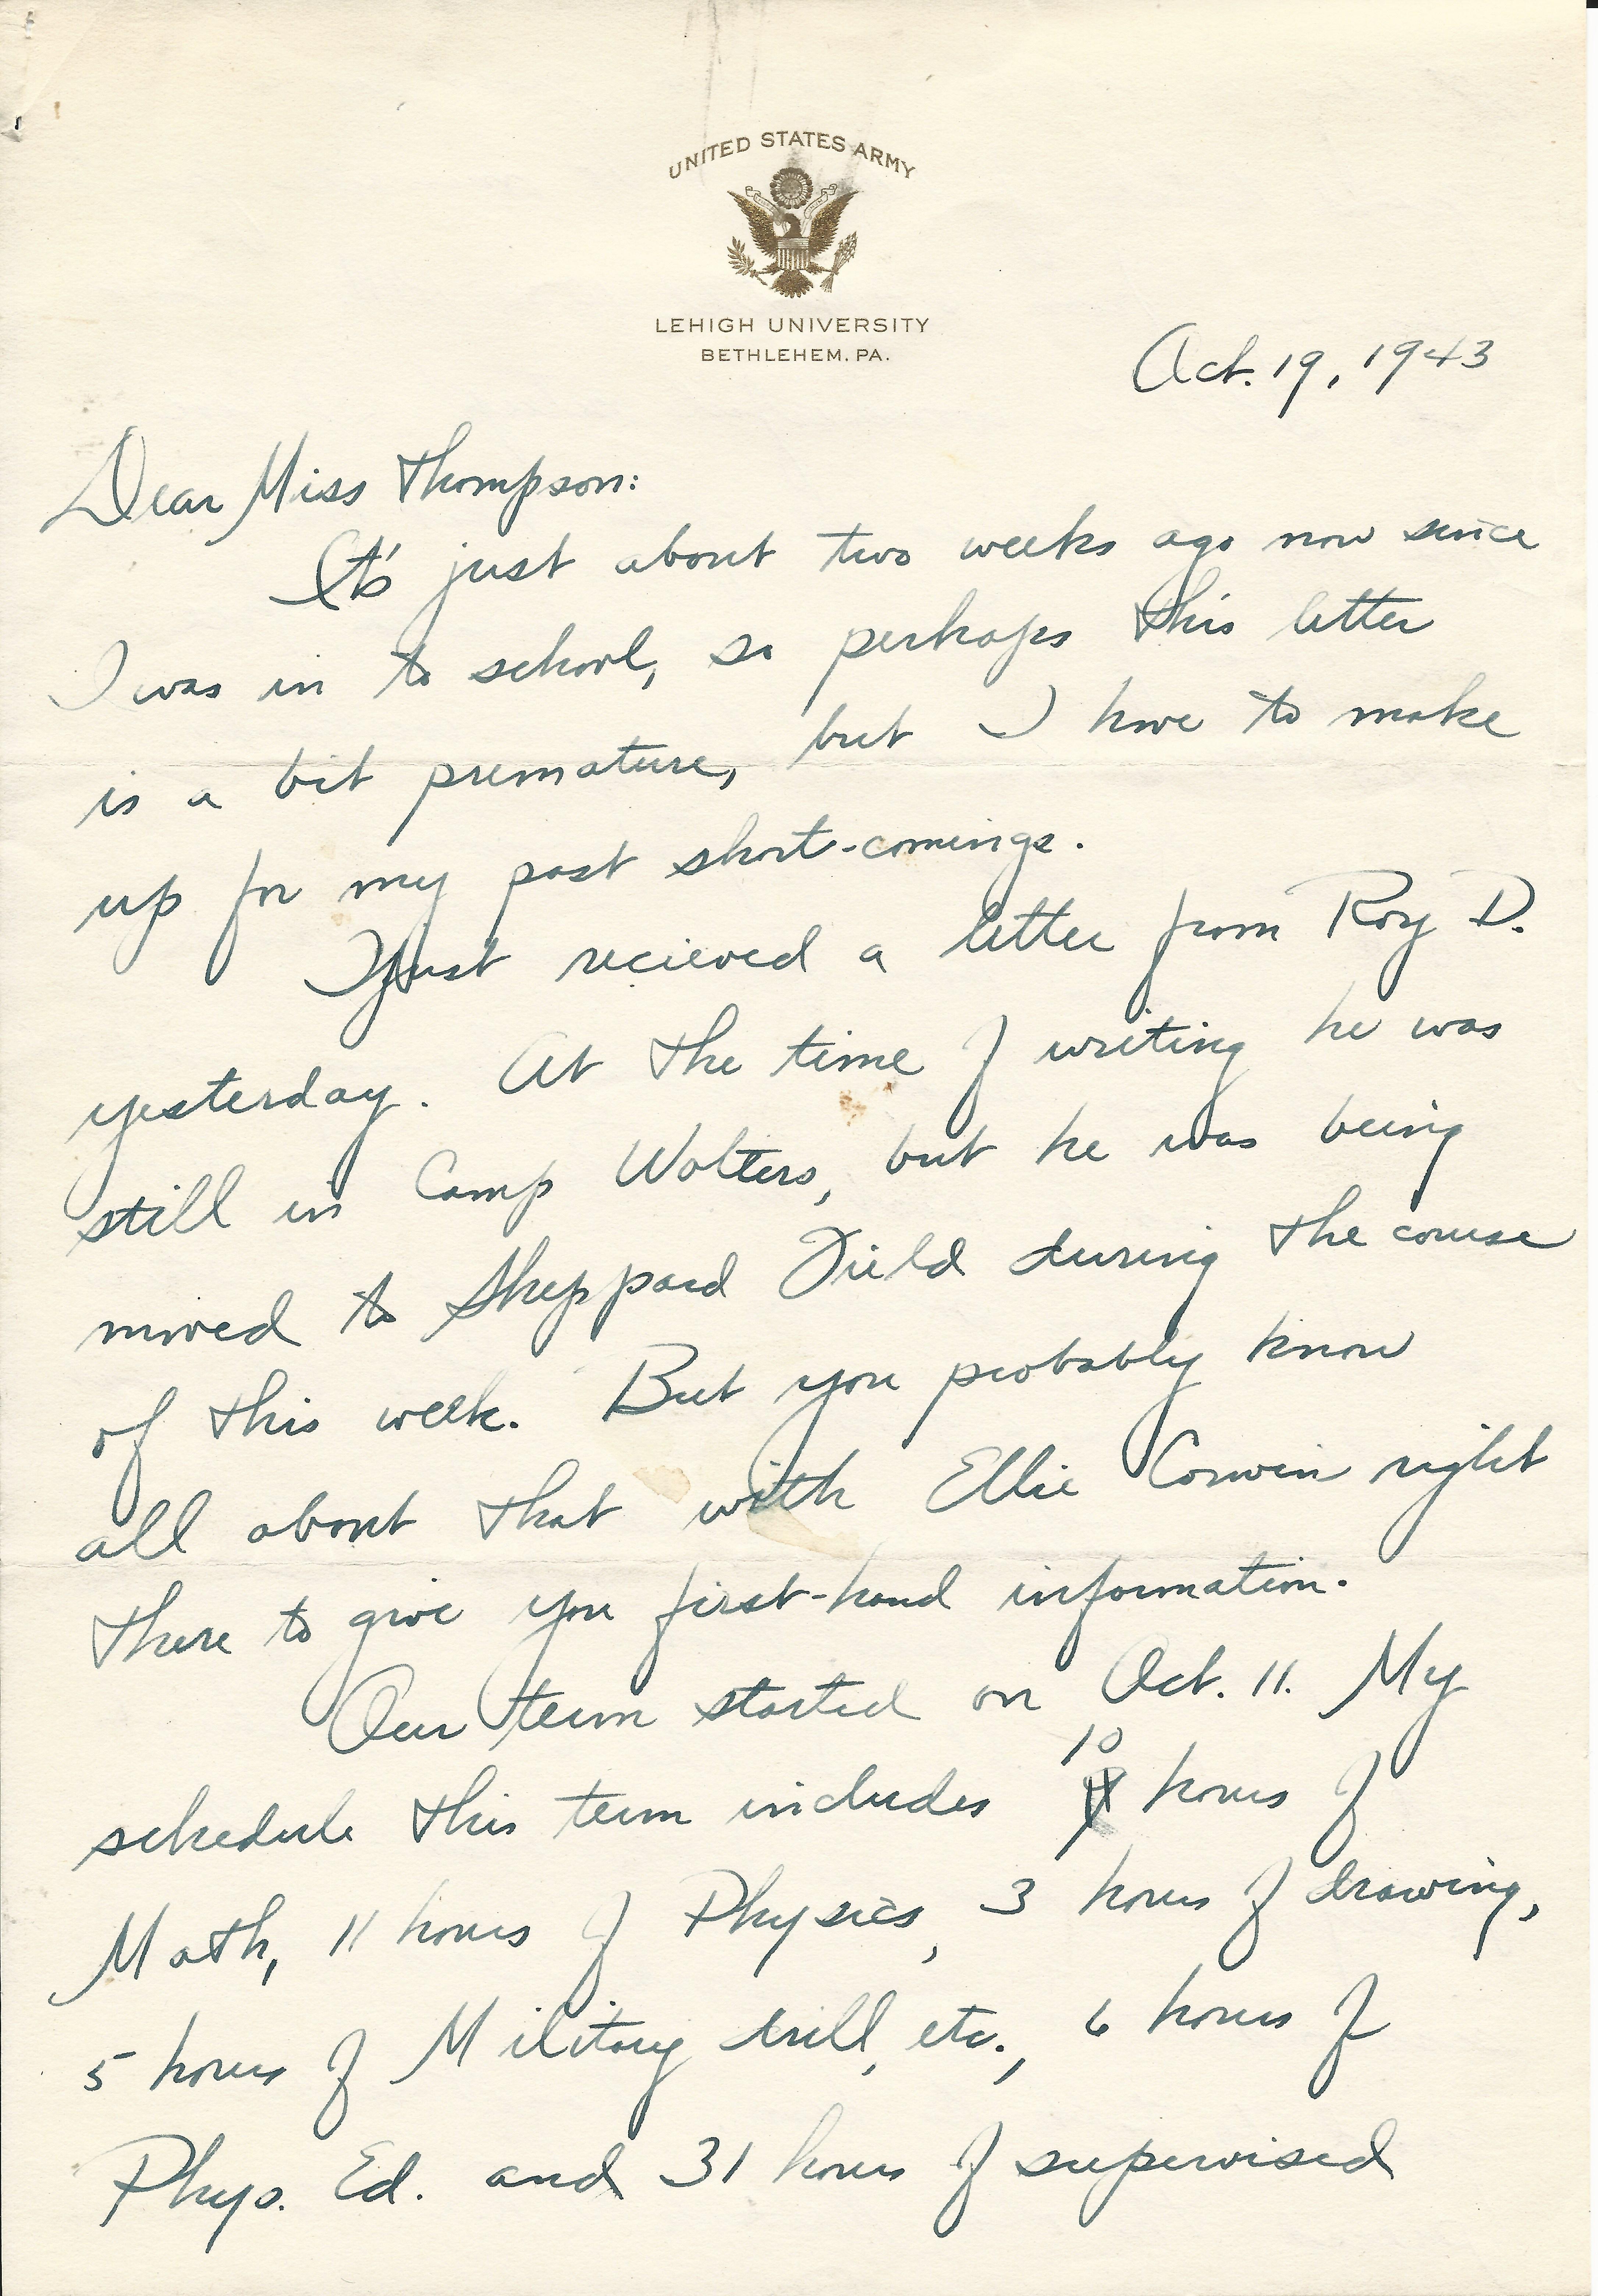 UNITED STATES ARMY
LEHIGH UNIVERSITY
BETHLEHEM, PA.
Oct. 19, 1943
Dear Miss Thompson:
It's just about two weeks ago now since
I was in to school, so perhaps this letter
is a bit premature, but I have to make
up for my past short-comings.
I just recieved a letter from Roy D.
yesterday. At the time of writing he was
still in Camp Wolters, but he was being
moved to Sheppard Field during the course
of this week. But you probably know
all about that with Ellie Conwin right
there to give you first-hand information.
Our term started on Oct. 11. My
schedule this term includes 10 hours of
Math, 11 hours of Physics, 3 hours of drawing,
5 hours of Military drill, etc., 6 hours of
Phys. Ed. and 31 hours of supervised